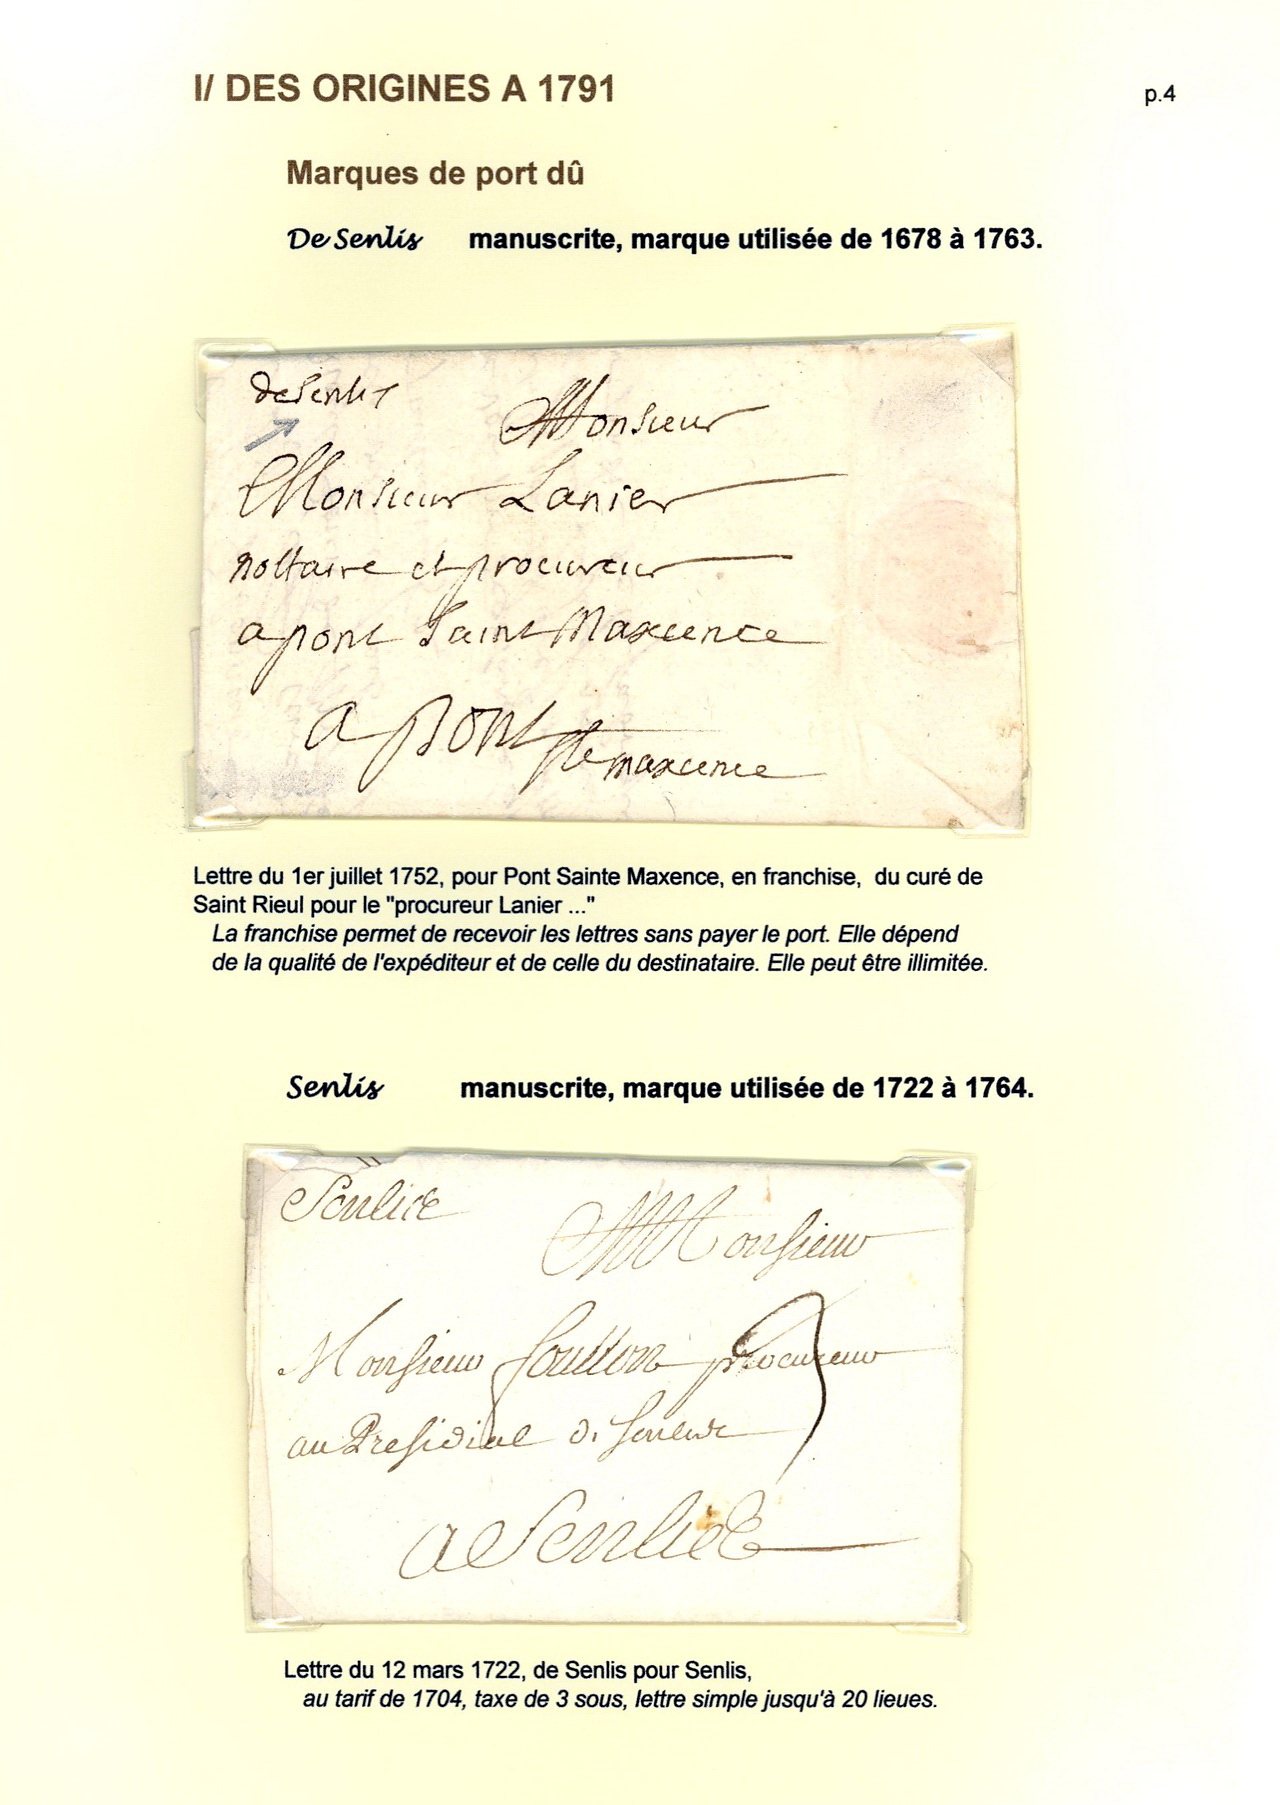 I/ DES ORIGINES A 1791
p.4
Marques de port dû
De Senlis manuscrite, marque utilisée de 1678 à 1763.
de Senlis
Monsieur
Monsieur Lanier
nottaire et procureur
a pont Saint Maxcence
a pont
Ste maxcence
Lettre du 1er juillet 1752, pour Pont Sainte Maxence, en franchise, du curé de
Saint Rieul pour le "procureur Lanier ..."
La franchise permet de recevoir les lettres sans payer le port. Elle dépend
de la qualité de l'expéditeur et de celle du destinataire. Elle peut être illimitée.
Senlis manuscrite, marque utilisée de 1722 à 1764.
Senlice
Monsieur
3
Monsieur foullon procureur
au Presidial de
a Senlice
Lettre du 12 mars 1722, de Senlis pour Senlis,
au tarif de 1704, taxe de 3 sous, lettre simple jusqu'à 20 lieues.